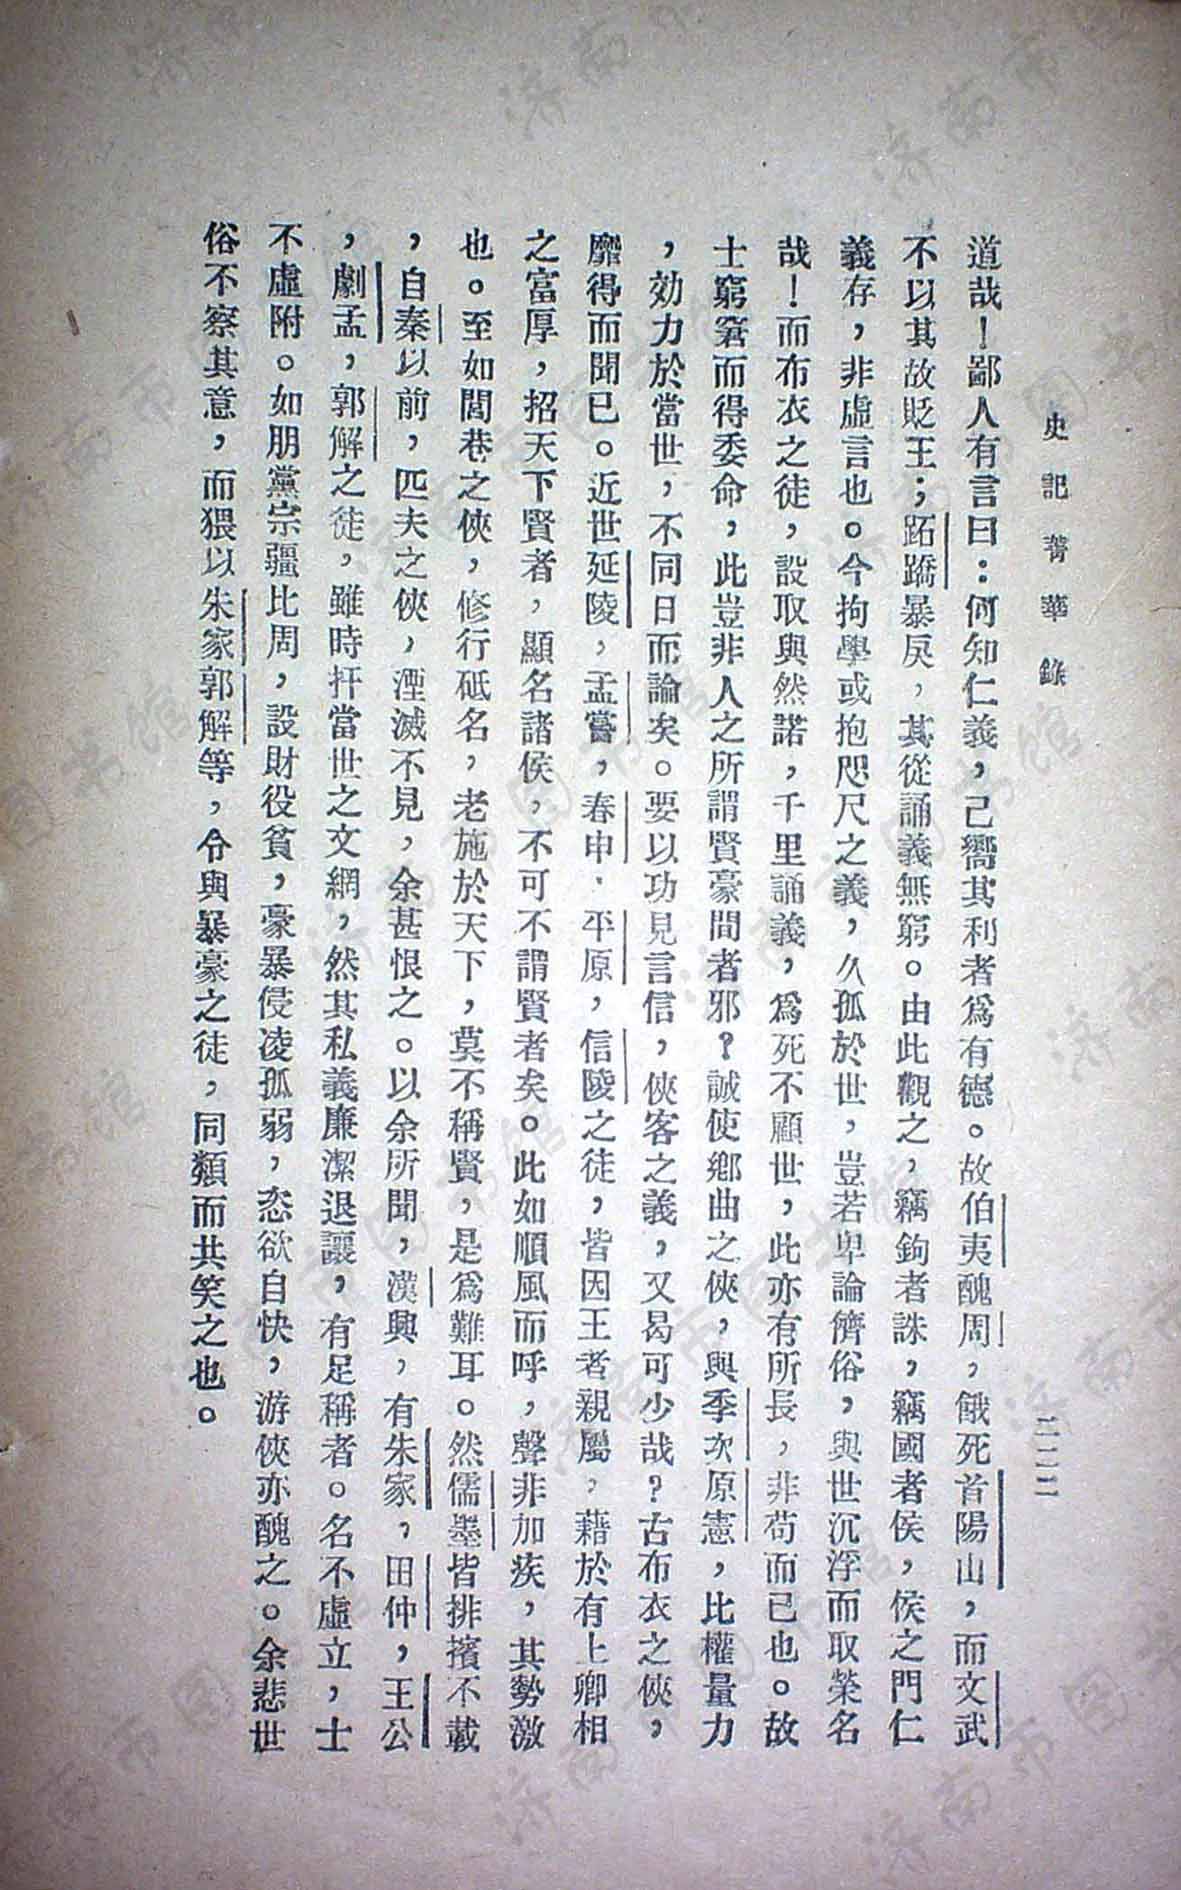 史記菁華錄
二二二
道哉！鄙人有言曰：何知仁義，己嚮其利者爲有德。故伯夷醜周，餓死首陽山，而文武
不以其故貶王；跖蹻暴戾，其從誦義無窮。由此觀之，竊鉤者誅，竊國者侯，侯之門仁
義存，非虛言也。今拘學或抱咫尺之義，久孤於世，豈若卑論儕俗，與世沉浮而取榮名
哉！而布衣之徒，設取與然諾，千里誦義，爲死不顧世，此亦有所長，非苟而已也。故
士窮窘而得委命，此豈非人之所謂賢豪間者邪？誠使鄉曲之俠，與季次原憲，比權量力
，効力於當世，不同日而論矣。要以功見言信，俠客之義，又曷可少哉？古布衣之俠，
靡得而聞已。近世延陵，孟嘗，春申，平原，信陵之徒，皆因王者親屬，藉於有土卿相
之富厚，招天下賢者，顯名諸侯，不可不謂賢者矣。此如順風而呼，聲非加疾，其勢激
也。至如閭巷之俠，修行砥名，老施於天下，莫不稱賢，是爲難耳。然儒墨皆排擯不載
，自秦以前，匹夫之俠，湮滅不見，余甚恨之。以余所聞，漢興，有朱家，田仲，王公
，劇孟，郭解之徒，雖時扞當世之文網，然其私義廉潔退讓，有足稱者。名不虛立，士
不虛附。如朋黨宗疆比周，設財役貧，豪暴侵凌孤弱，恣欲自快，游俠亦醜之。余悲世
俗不察其意，而猥以朱家郭解等，令與暴豪之徒，同類而共笑之也。
济南市图书馆